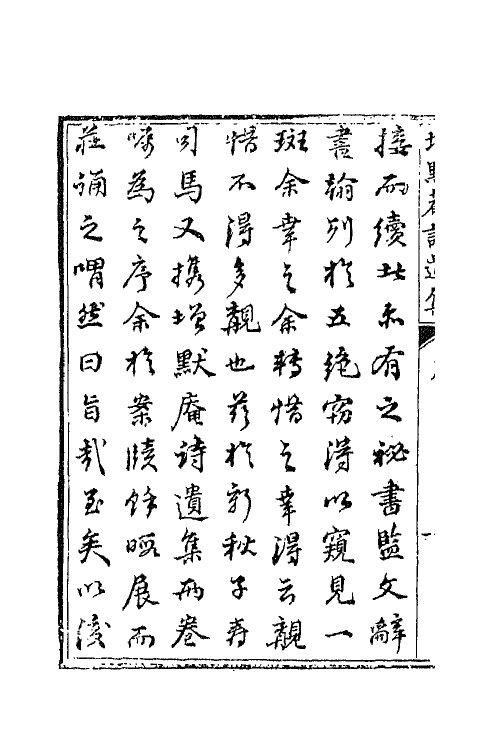 接而續此未有之秘書監文辭
書翰列於五絕竊得以窺見一
斑余幸之余轉惜之幸得云覩
惜不得多覩也茲於新秋子壽
司馬又攜增默庵詩遺集兩卷
囑為之序余於案牘餘暇展而
莊誦之喟然曰旨哉至矣以浚